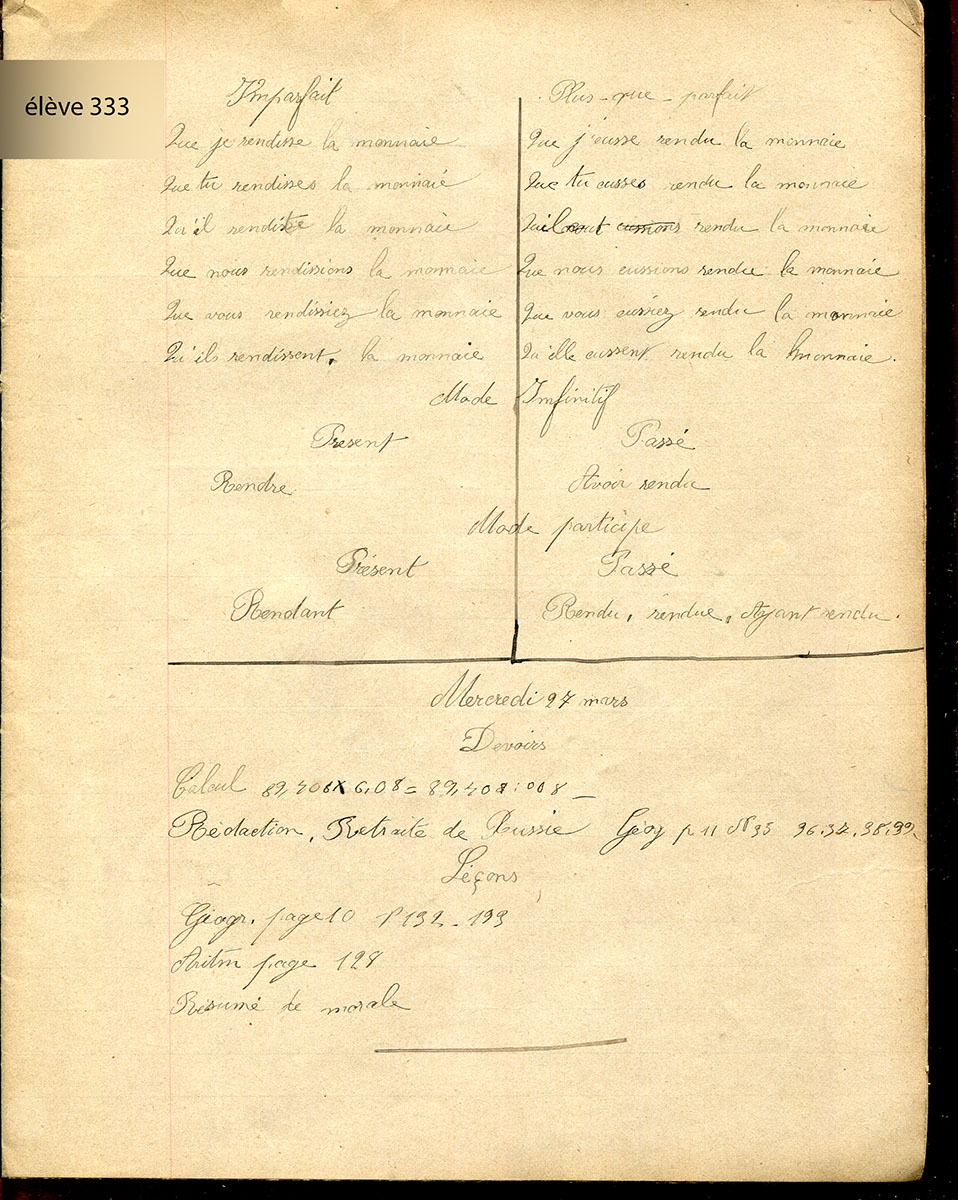 élève 333
Imparfait
Que je rendisse la monnaie
Que tu rendisses la monnaie
Qu'il rendisse la monnaie
Que nous rendissions la monnaie
Que vous rendissiez la monnaie
Qu'ils rendissent, la monnaie
Plus-que-parfait
Que j'eusse rendu la monnaie
Que tu eusses rendu la monnaie
Qu'il eut rendu la monnaie
Que nous eussions rendu la monnaie
Que vous eussiez rendu la monnaie
Qu'elle eussent rendu la monnaie.
Mode Infinitif
Présent Passé
Rendre Avoir rendu
Mode participe
Présent Passé
Rendant Rendu, rendue, Ayant rendu.
Mercredi 27 mars
Devoirs
Calcul
Rédaction, Retraite de Russie Géog p 11 N 35 36.37.38.39.
Leçons
Géogr. page 10 132 - 133
Aritm page 128
Résumé de morale